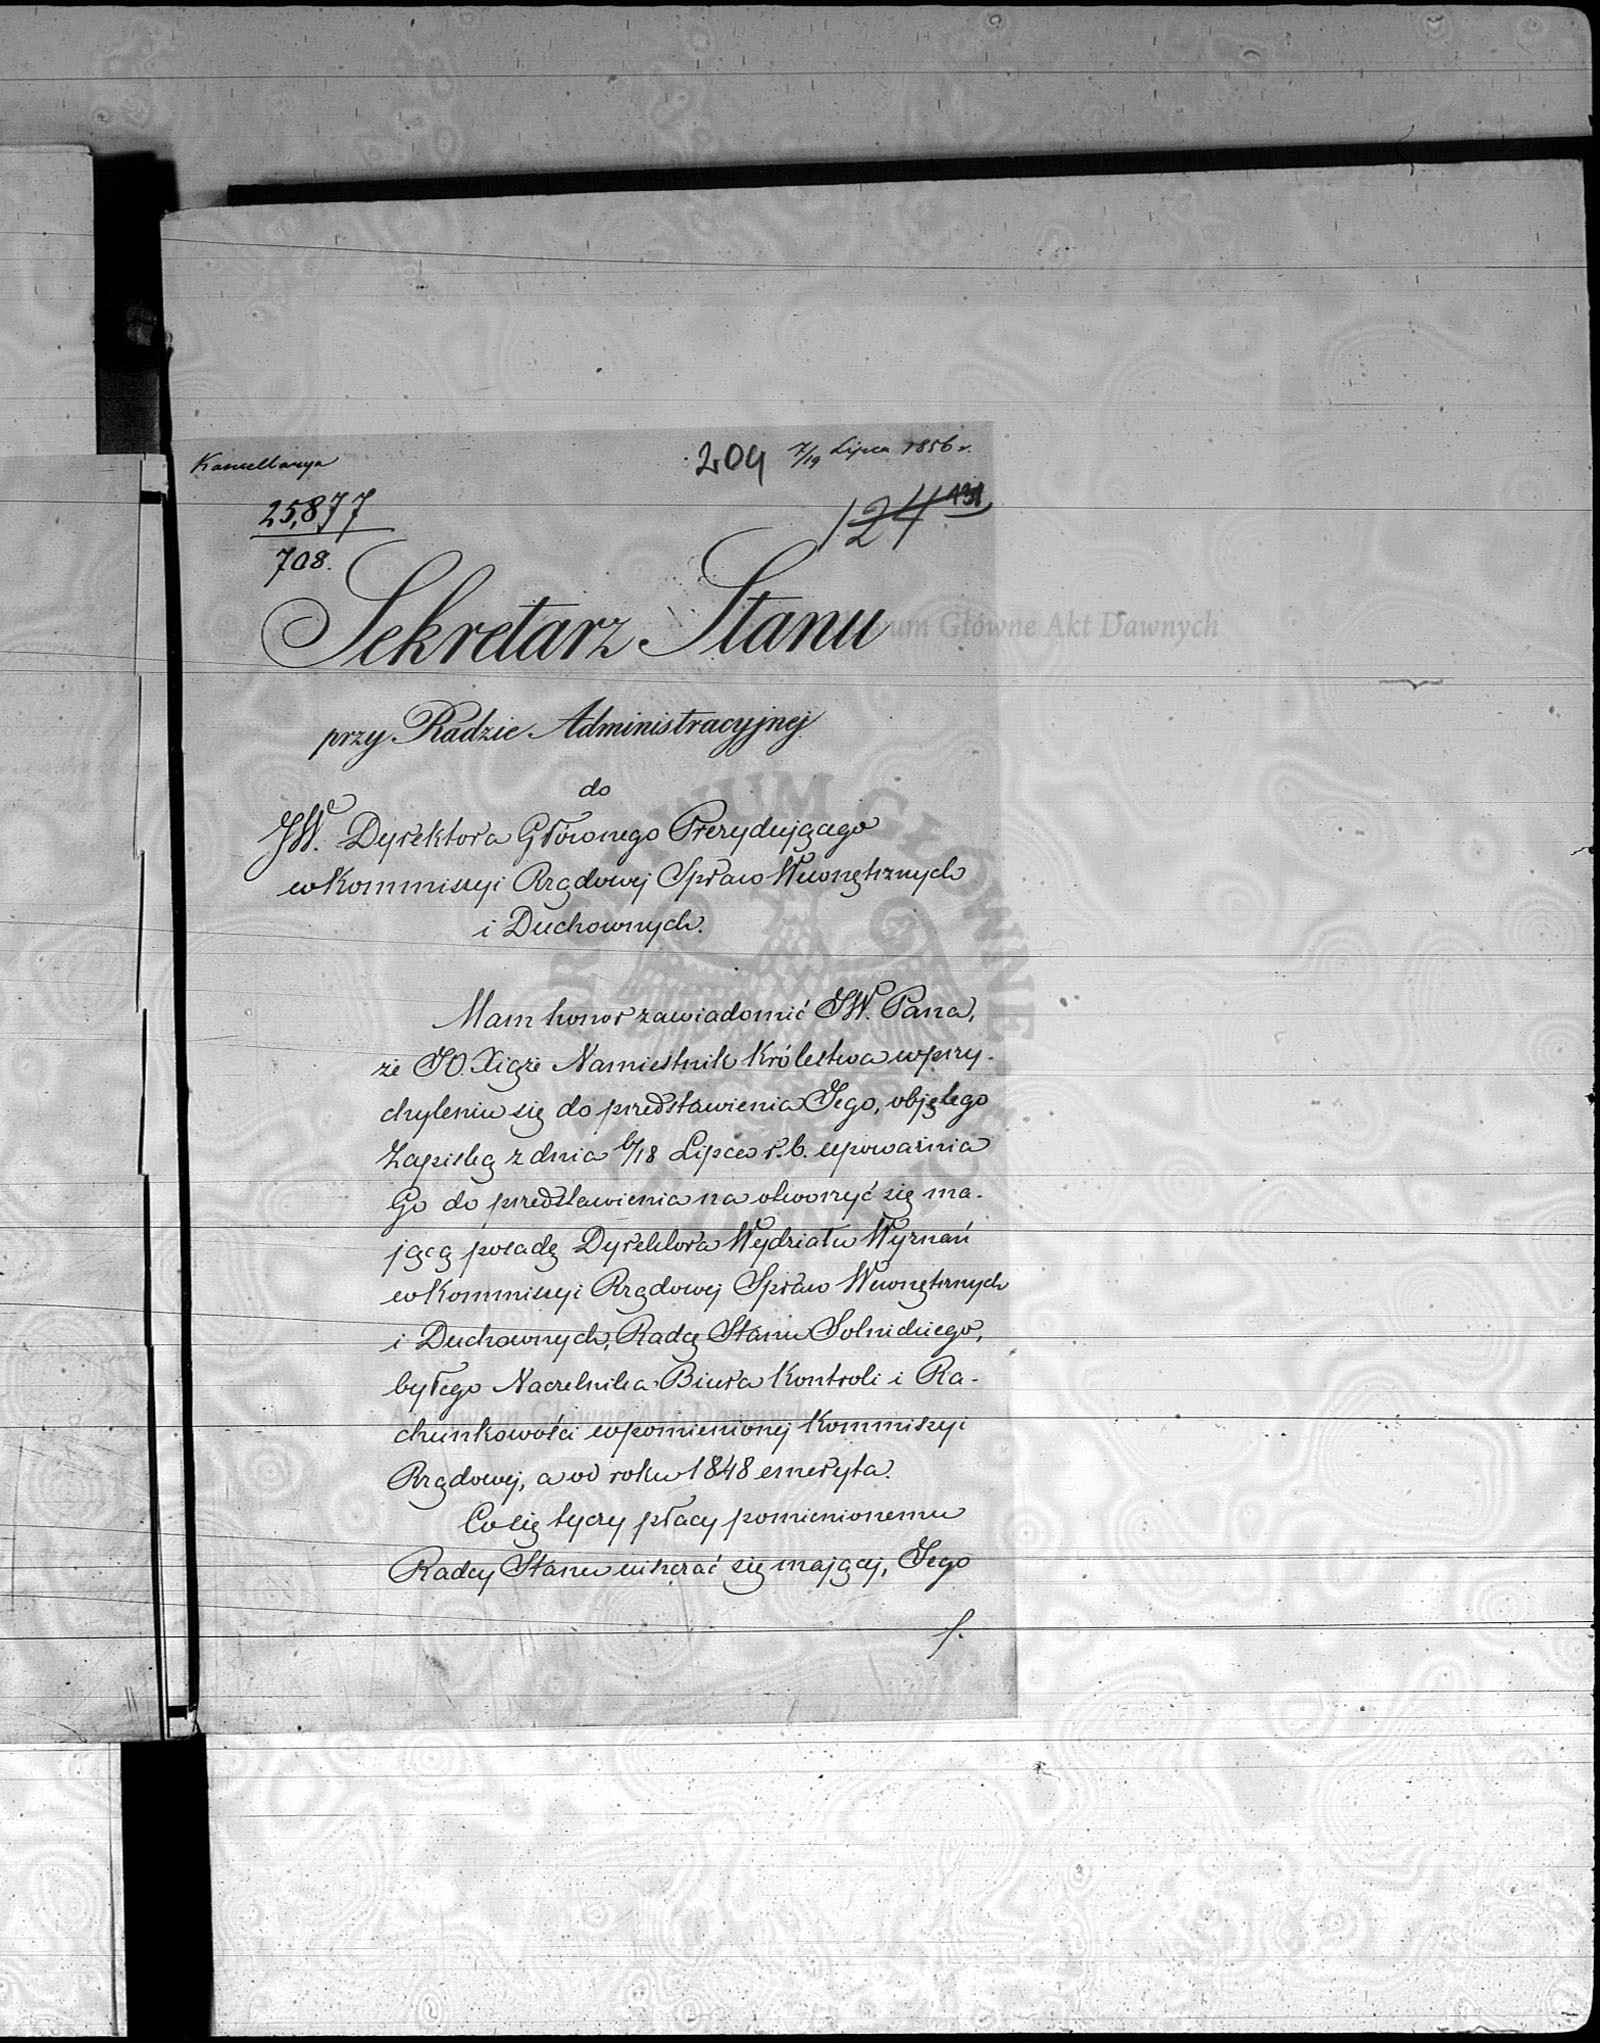 Kancellarya
209 7/19 Lipca 1856 r.
25,877
708.
124 131
Sekretarz Stanu
przy Radzie Administracyjnej
do
JW. Dyrektora Głównego Prezydującego
w Kommissyi Rządowej Spraw Wewnętrznych
i Duchownych.
Mam honor zawiadomić JW. Pana,
że JO. Xiąże Namiestnik Królestwa w przy-
chyleniu się do przedstawienia Jego, objętego
Zapiską z dnia 6/18 Lipca r.b. upoważnia
Go do przedstawienia na otworzyć się ma-
jącą posadę Dyrektora Wydziału Wyznań
w Kommissyi Rządowej Spraw Wewnętrznych
i Duchownych, Radcę Stanu Solnickiego,
byłego Naczelnika Biura Kontroli i Ra-
chunkowości wpomienionej Kommissyi
Rządowej, a od roku 1848 emeryta.
Co się tyczy płacy pomienionemu
Radcy Stanu udzielać się mającej, Jego
Archiwum Główne Akt Dawnych